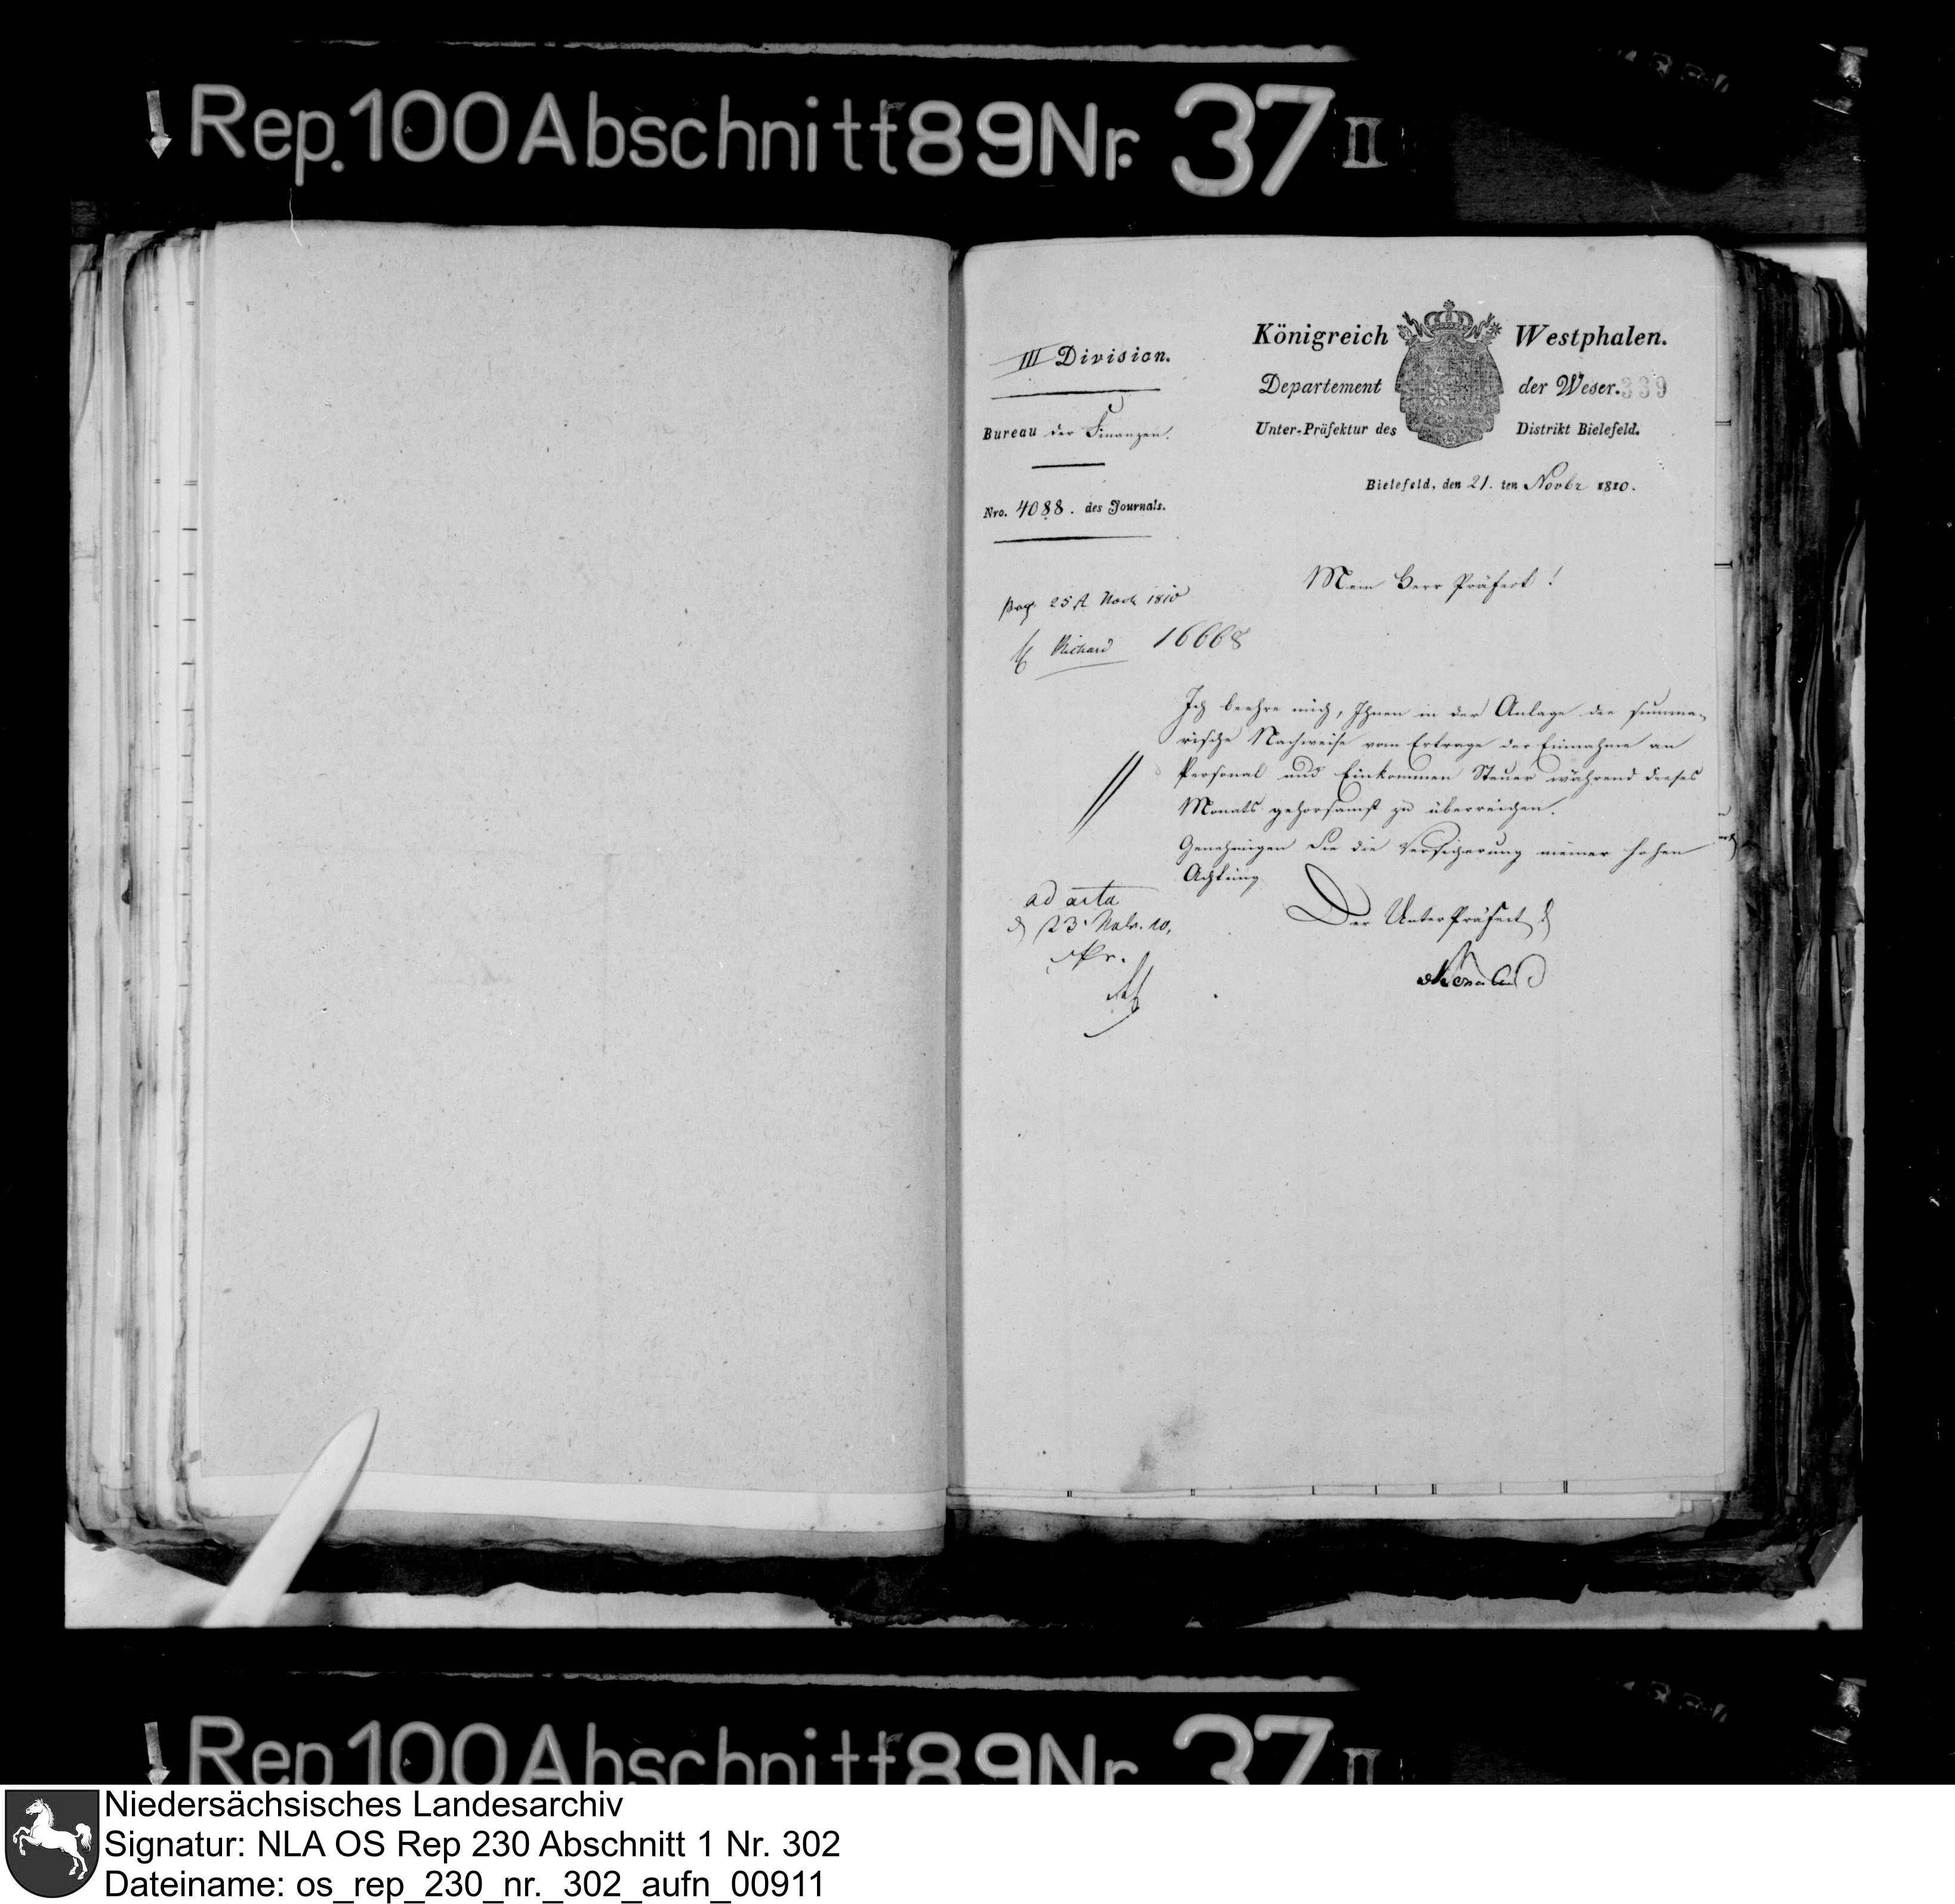 Rep. 100 Abschnitt 89 Nr. 37 II
III Division.
Bureau der Finanzen.
Nro. 4088. des Journals.
Königreich Westphalen.
Departement der Weser. 339
Unter-Präfektur des Distrikt Bielefeld.
Bielefeld, den 21. ten Novbr 1810.
25 Novb 1810
Richard 16668
Mein Herr Präfect!
Ich beehre mich, Ihnen in der Anlage die summa-
rische Nachweise vom Ertrage der Einnahme an
Personal und Einkommen Steuer während dieses
Monats gehorsamst zu überreichen.
Genehmigen Sie die Versicherung meiner hohen
Achtung
Der Unter Präfect
ad acta
23 Nobr. 10.
Rep. 100 Abschnitt 89 Nr. 37 II
Niedersächsisches Landesarchiv
Signatur: NLA OS Rep 230 Abschnitt 1 Nr. 302
Dateiname: os_rep_230_nr._302_aufn_00911